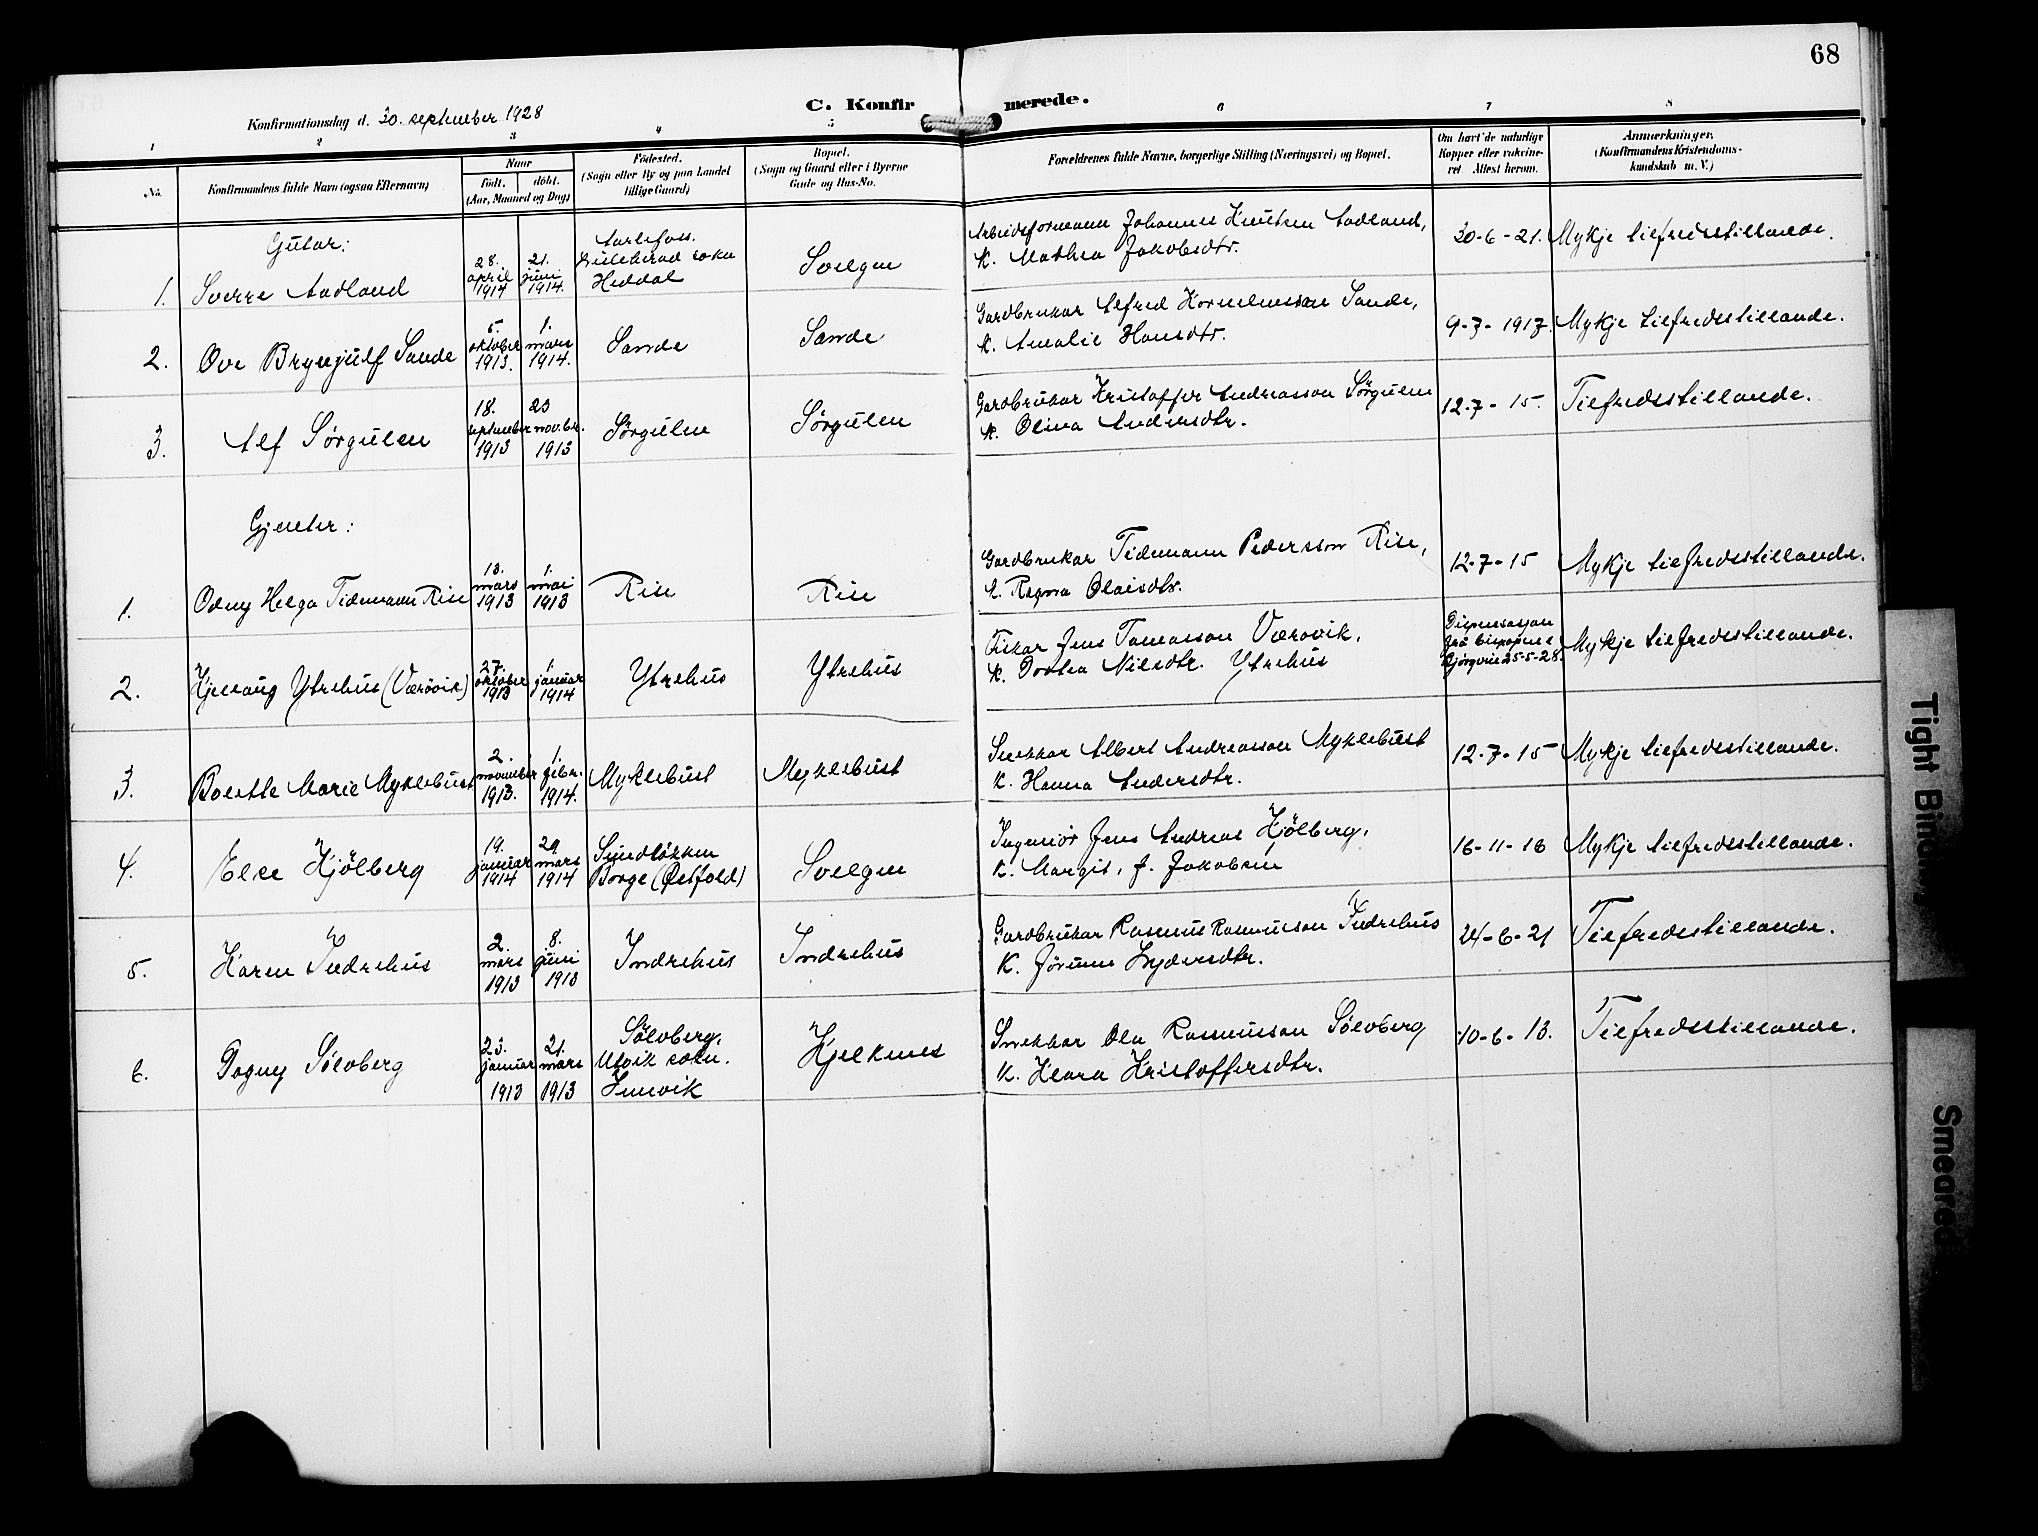 68
C. Konfirmerede.
Konfirmationsdag d. 30. september 1928
1 2 3 4 5 6 7 8
No.
Konfirmandens fulde Navn (ogsaa Efternavn)
Naar
født. døbt.
(Aar, Maaned og Dag)
Fødested.
(Sogn eller By og paa Landet
tillige Gaard)
Bopæl.
(Sogn og Gaard eller i Byerne
Gade og Hus-No.
Forældrenes fulde Navne, borgerlige Stilling (Næringsvei) og Bopæl.
Om havt de naturlige
Kopper eller vakcine-
ret Attest herom.
Anmærkninger.
(Konfirmandens Kristendoms-
kundskab m. V.)
Gutar:
1. Sverre Aadland
28. april 1914
21. juni 1914.
soka
Heddal
Svelgen
Arbeidsformann Johannes Knutsen Aadland,
K. Mathea Jakobsdtr.
30-6-21.
Mykje tilfredsstillande.
2. Ove Brynjulf Sande
5. oktober 1913.
1. mars 1914.
Sande
Sande
Gardbrukar Alfred KornelIusson Sande,
K. Amalie Hansdtr.
9-7-1917.
Mykje tilfredsstillande.
3. Alf Sørgulen
18. september 1913
23 novbr. 1913
Sørgulen
Sørgulen
Gardbrukar Kristoffer Andreasson Sørgulen
K. Olina Andersdtr.
12-7-15.
Tilfredsstillande.
Gjenter:
1. Odny Helga Tidemann Rise
13. mars 1913
1. mai 1913
Rise
Rise
Gardbrukar Tidemann Pedersson Rise,
Olaisdtr.
12-7-15
Mykje tilfredsstillande.
2. Hjellaug Ytrehus (Værøvik)
27. oktober 1913
1. januar 1914
Ytrehus
Ytrehus
Fiskar Jens Tomasson Værøvik,
K. Dortea Nilsdtr. Ytrehus
Dispensasjon
frå bispopen i
Bjørgvin 25-5-28.
Mykje tilfredsstillande.
3. Borthe Marie Myklebust
2. november 1913.
1. febr. 1914.
Myklebust
Myklebust
Snekkar Albert Andreasson Myklebust
K. Hanna Andersdtr.
12-7-15
Mykje tilfredsstillande.
4. Else Kjølberg
19. januar 1914
29. mars 1914
Sundløkken
Borge (Østfold)
Svelgen
Ingeniør Jens Andreas Kjølberg,
K. Margit, f. Jakobsen
16-11-18
Mykje tilfredsstillande.
5. Karen Indrehus
2. mars 1913
8. juni 1913
Indrehus
Indrehus
Gardbrukar Rasmus Rasmusson Indrehus
K. Jørunn Lydersdtr.
24-6-21
Tilfredsstillande.
6. Dagny Sølvberg
23. januar 1913
21. mars 1913
Sølvberg,
Utvik sokn.
Innvik
Kjelkenes
Snekkar Ola Rasmusson Sølvberg
K. Klara Kristoffersdtr.
10-6-13.
Tilfredsstillande.
Tight Binding
Smeared